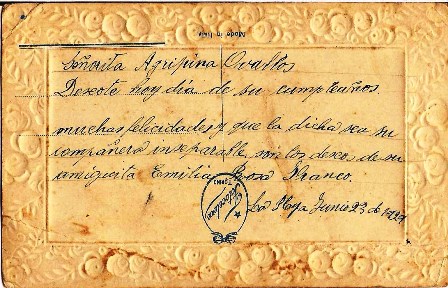 Made in
Señorita Agripina Ovallos
Deseole hoy dia de su cumpleaños
muchas felicidades y que la dicha sea su
compañera inseparable son los deseos de su
amiguita Emilia Rosa Franco.
La Playa Junio 23 de 1927